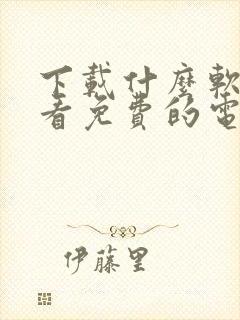 下載什麼軟
看免費的電
伊藤里